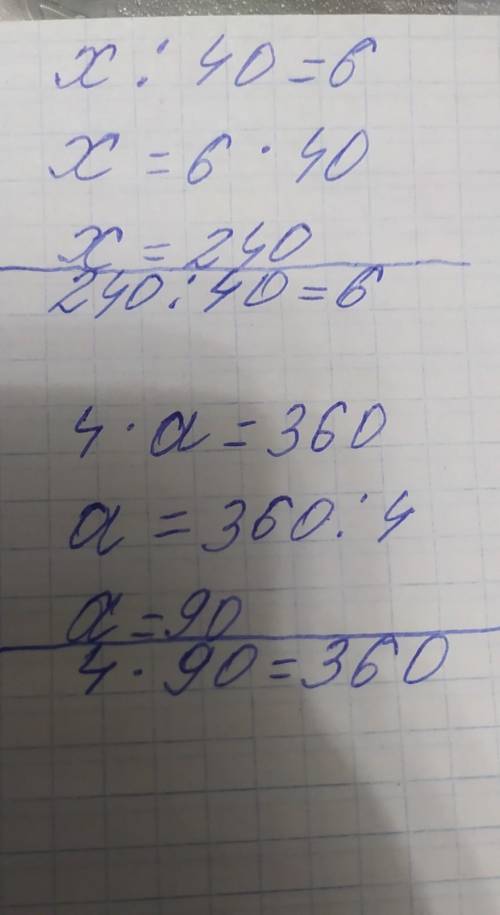 x : 40 = 6
x = 6 · 40
x = 240
240 : 40 = 6
4 · a = 360
a = 360 : 4
a = 90
4 · 90 = 360